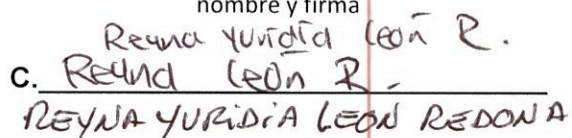 nombre y firma
Reyna Yuridia León R.
C. Reyna León R.
REYNA YURIDIA LEON REDONA